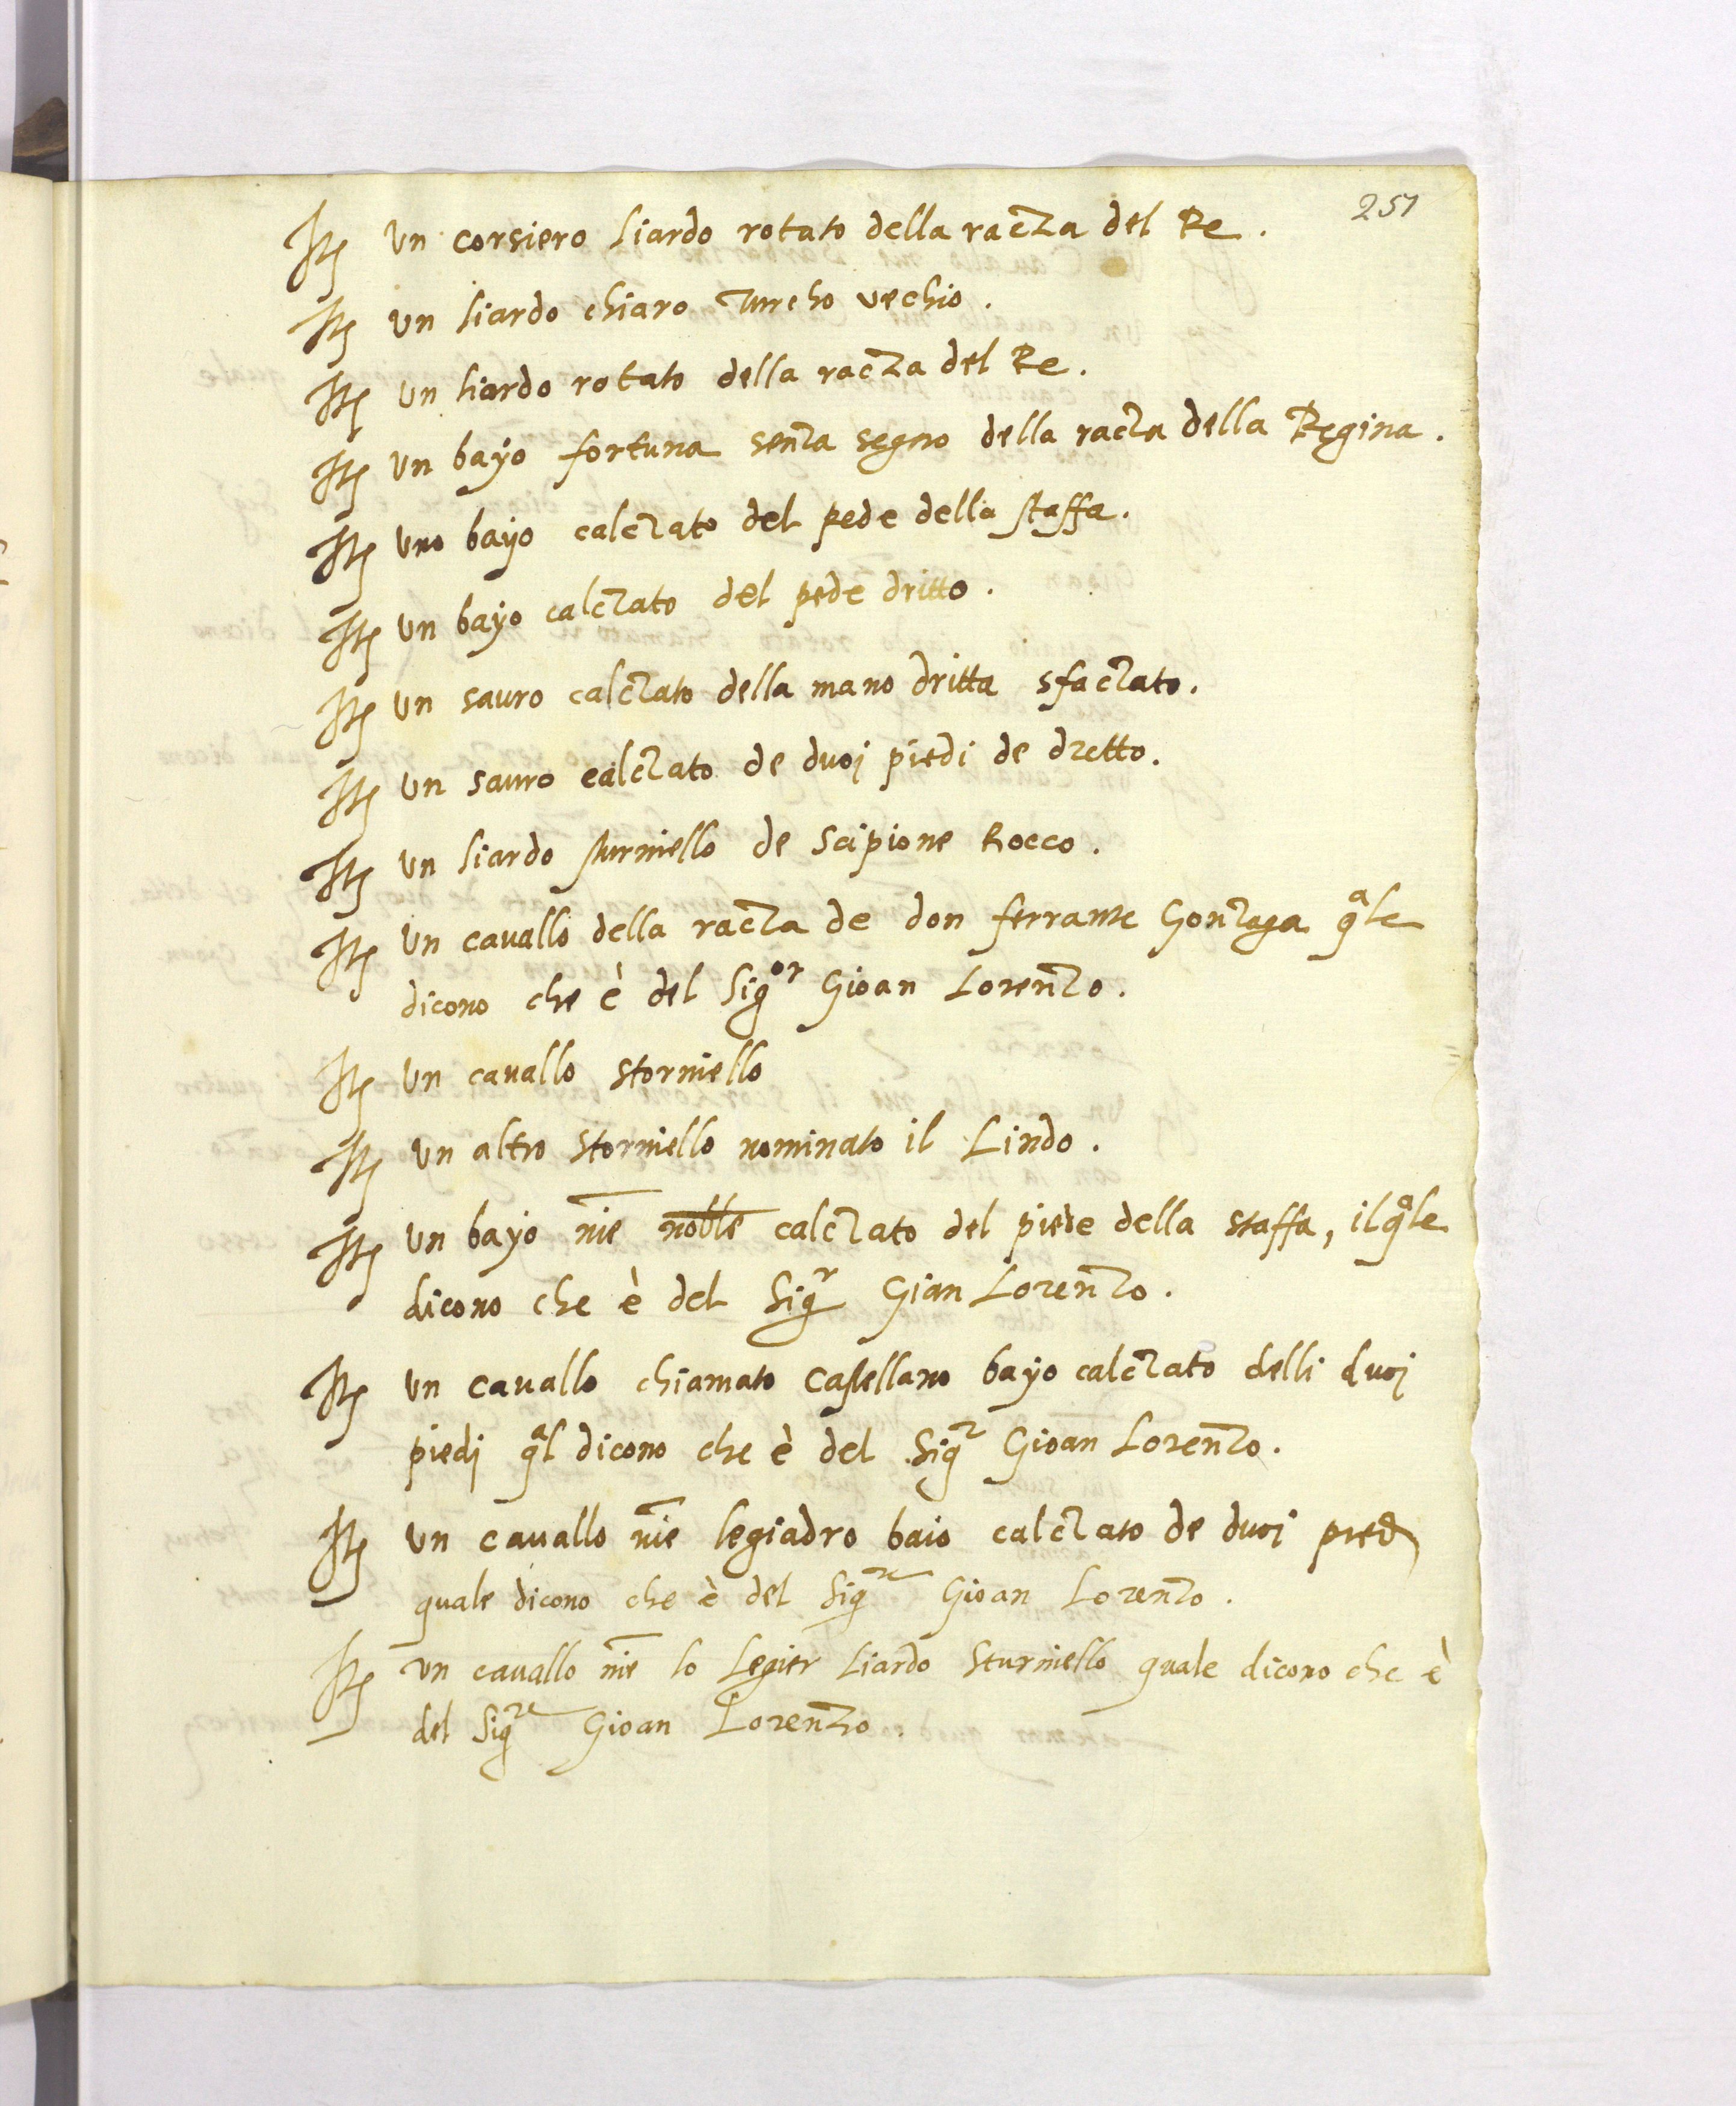 251
Itē Un corsiero liardo rotato della raczа del Re.
Itē un liardo chiaro Turcho vechio.
Itē un liardo rotato della racza del Re.
Itē Un bayo fortuna senza segno della racza della Regina.
Itē Uno bayo calczato del pede della staffa.
Itē Un bayo calczato del pede dritto.
Itē Un sauro calczato della mano dritta sfaczato.
Itē Un sauro calczato de duoj piedi de dretto.
Itē un liardo sturniello de Scipione Rocco.
Itē Un cauallo della racza de don ferrante Gonzaga qale
dicono che è del Sigor Gioan Lorenzo.
Itē Un cauallo storniello
Itē Un altro storniello nominato il Lindo.
Itē Un bayo nře noble calczato del piede della staffa, ilqale
dicono che è del Sigr Gian Lorenzo.
Itē Un cauallo chiamato Castellano bayo calczato delli duoj
piedj qal dicono che è del Sigr Gioan Lorenzo.
Itē Un cauallo nīe legiadro baio calczato de duoi pied
quale dicono che è del Sigre Gioan Lorenzo.
Itē Un cauallo nīe lo Legier liardo sturniello quale dicono che è
del Sigre Gioan Lorenzo.